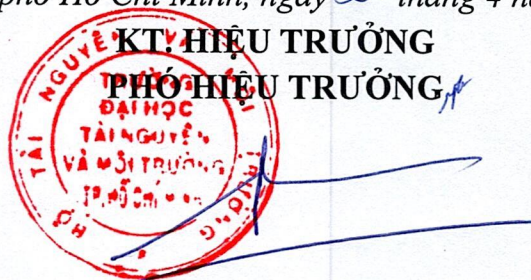 phố Hồ Chí Minh, ngày tháng 4 n
KT. HIỆU TRƯỞNG
PHÓ HIỆU TRƯỞNG
TRƯỜNG
ĐẠI HỌC
TÀI NGUYÊN
VÀ MÔI TRƯỜNG
TP.HỒ CHÍ MINH